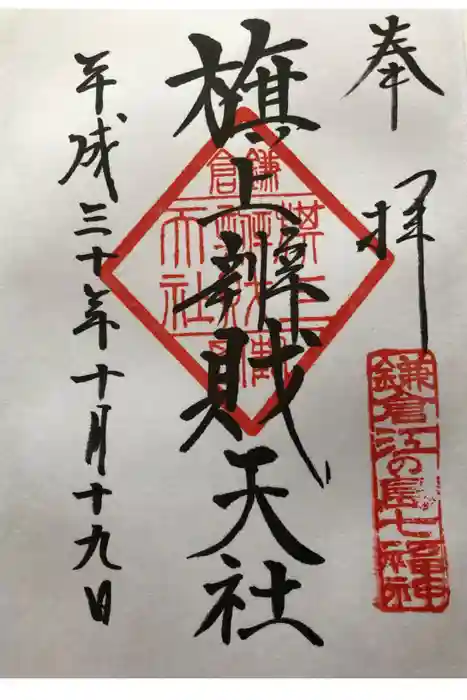 奉拝
鎌倉江の島七福神
旗上辨財天社
鎌倉
平成三十年十月十九日